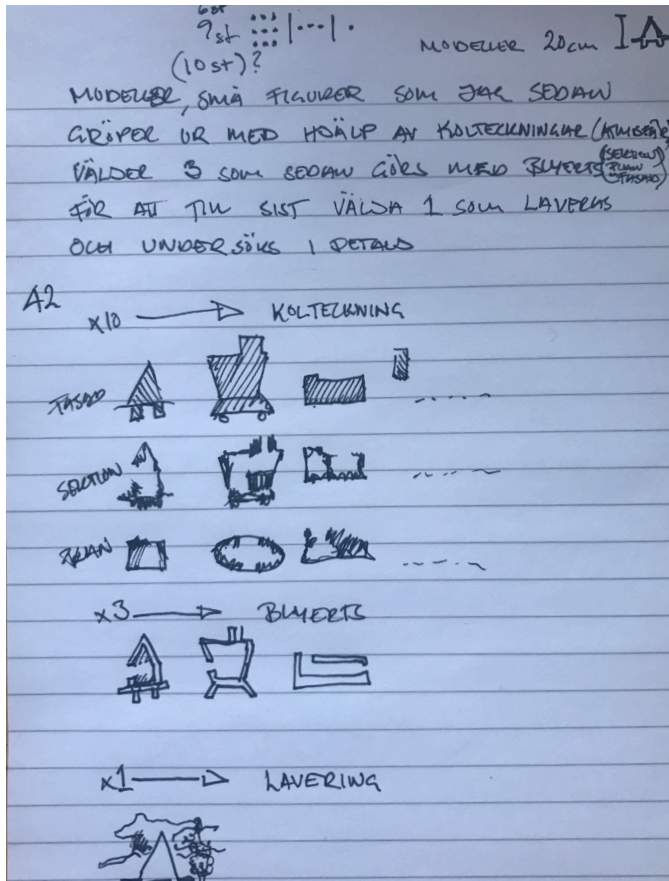 6st
9st
(10st)?
MODELLER 20cm
MODELLER, SMÅ FIGURER SOM JAG SEDAN
GRÖPER UR MED HJÄLP AV KOLTECKNINGAR
VÄLJER 3 SOM SEDAN GÖRS MED BLYERTS (SEKTION PLAN FASAD)
FÖR ATT TILL SIST VÄLJA 1 SOM LAVERAS
OCH UNDERSÖKS I DETALJ
A2
x10 KOLTECKNING
FASAD
SEKTION
PLAN
x3 BLYERTS
x1 LAVERING